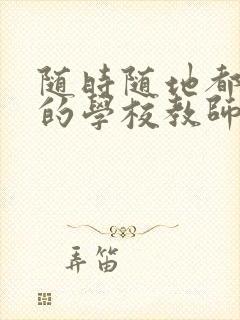 随時随地都
的學校教師
弄笛